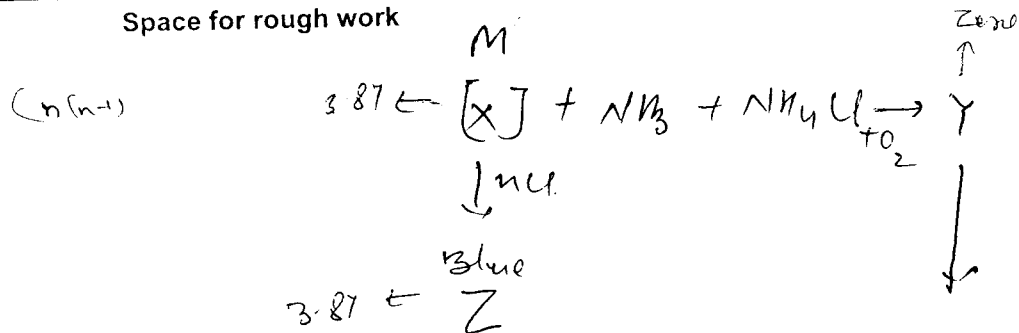 Space for rough work
M
Zero
(n(n-1)
3.87 ← [X] + NH3 + NH4Cl → Y
+O2
↓ HCl
Blue
3.87 ← Z